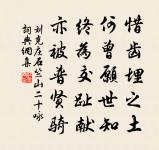 惜齿埋之土
何曾願世知
终為交趾献
亦被普贤骑
刘克庄石竺山二十咏
词典网集